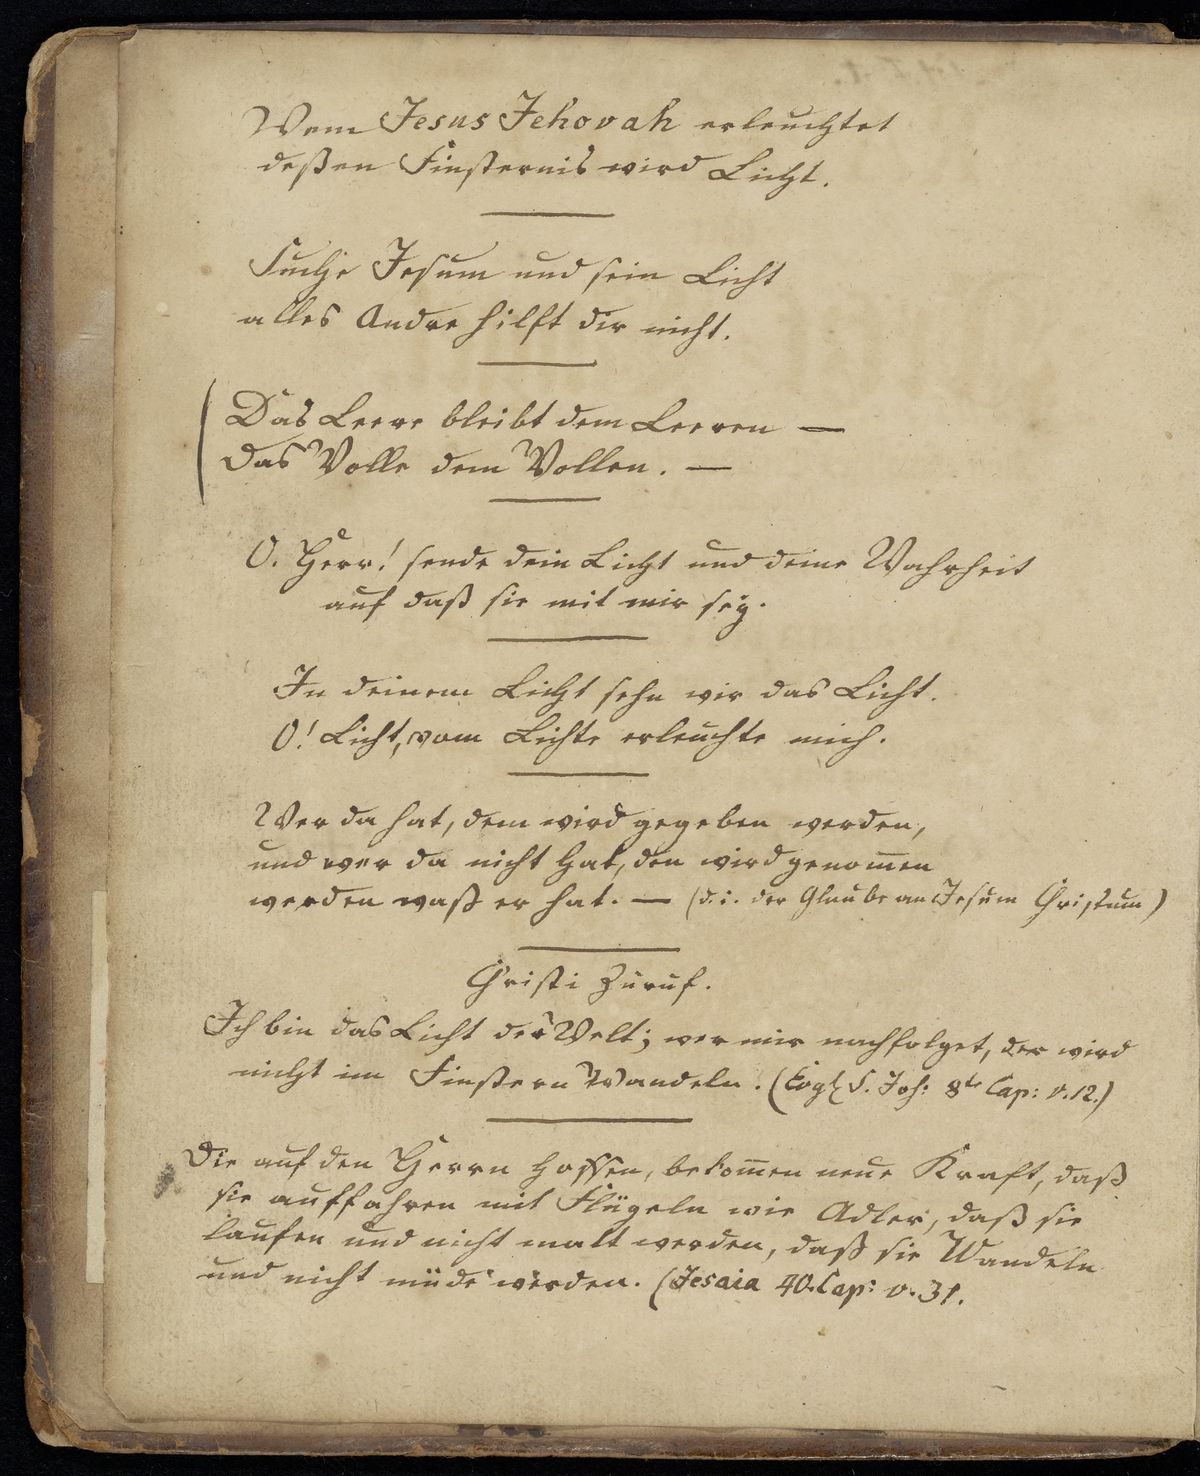 Wem Jesus Jehovah erleuchtet
deßen Finsternis wird Licht.
Suche Jesum und sein Licht
alles Andre hilft dir nicht.
Das Leere bleibt dem Leeren —
Das Volle dem Vollen. —
O. Herr! sende dein Licht und deine Wahrheit
auf daß sie mit mir seÿ.
In deinem Licht sehn wir das Licht.
O! Licht, vom Lichte erleuchte mich.
Wer da hat, dem wird gegeben werden,
und wer da nicht hat, den wird genom̅en
werden waß er hat. — (d. i. der Glaube an Jesum Christum)
Christi Zuruf.
Ich bin das Licht der Welt; wer mir nachfolget, der wird
nicht im Finstern Wandeln. (Evgl S. Joh: 8te Cap: v. 12.)
Die auf den Herrn hoffen, bekom̅en neue Kraft, daß
sie auffahren mit Flügeln wie Adler, daß sie
laufen und nicht matt werden, daß sie Wandeln
und nicht müde werden. (Jesaia 40. Cap: v. 31.